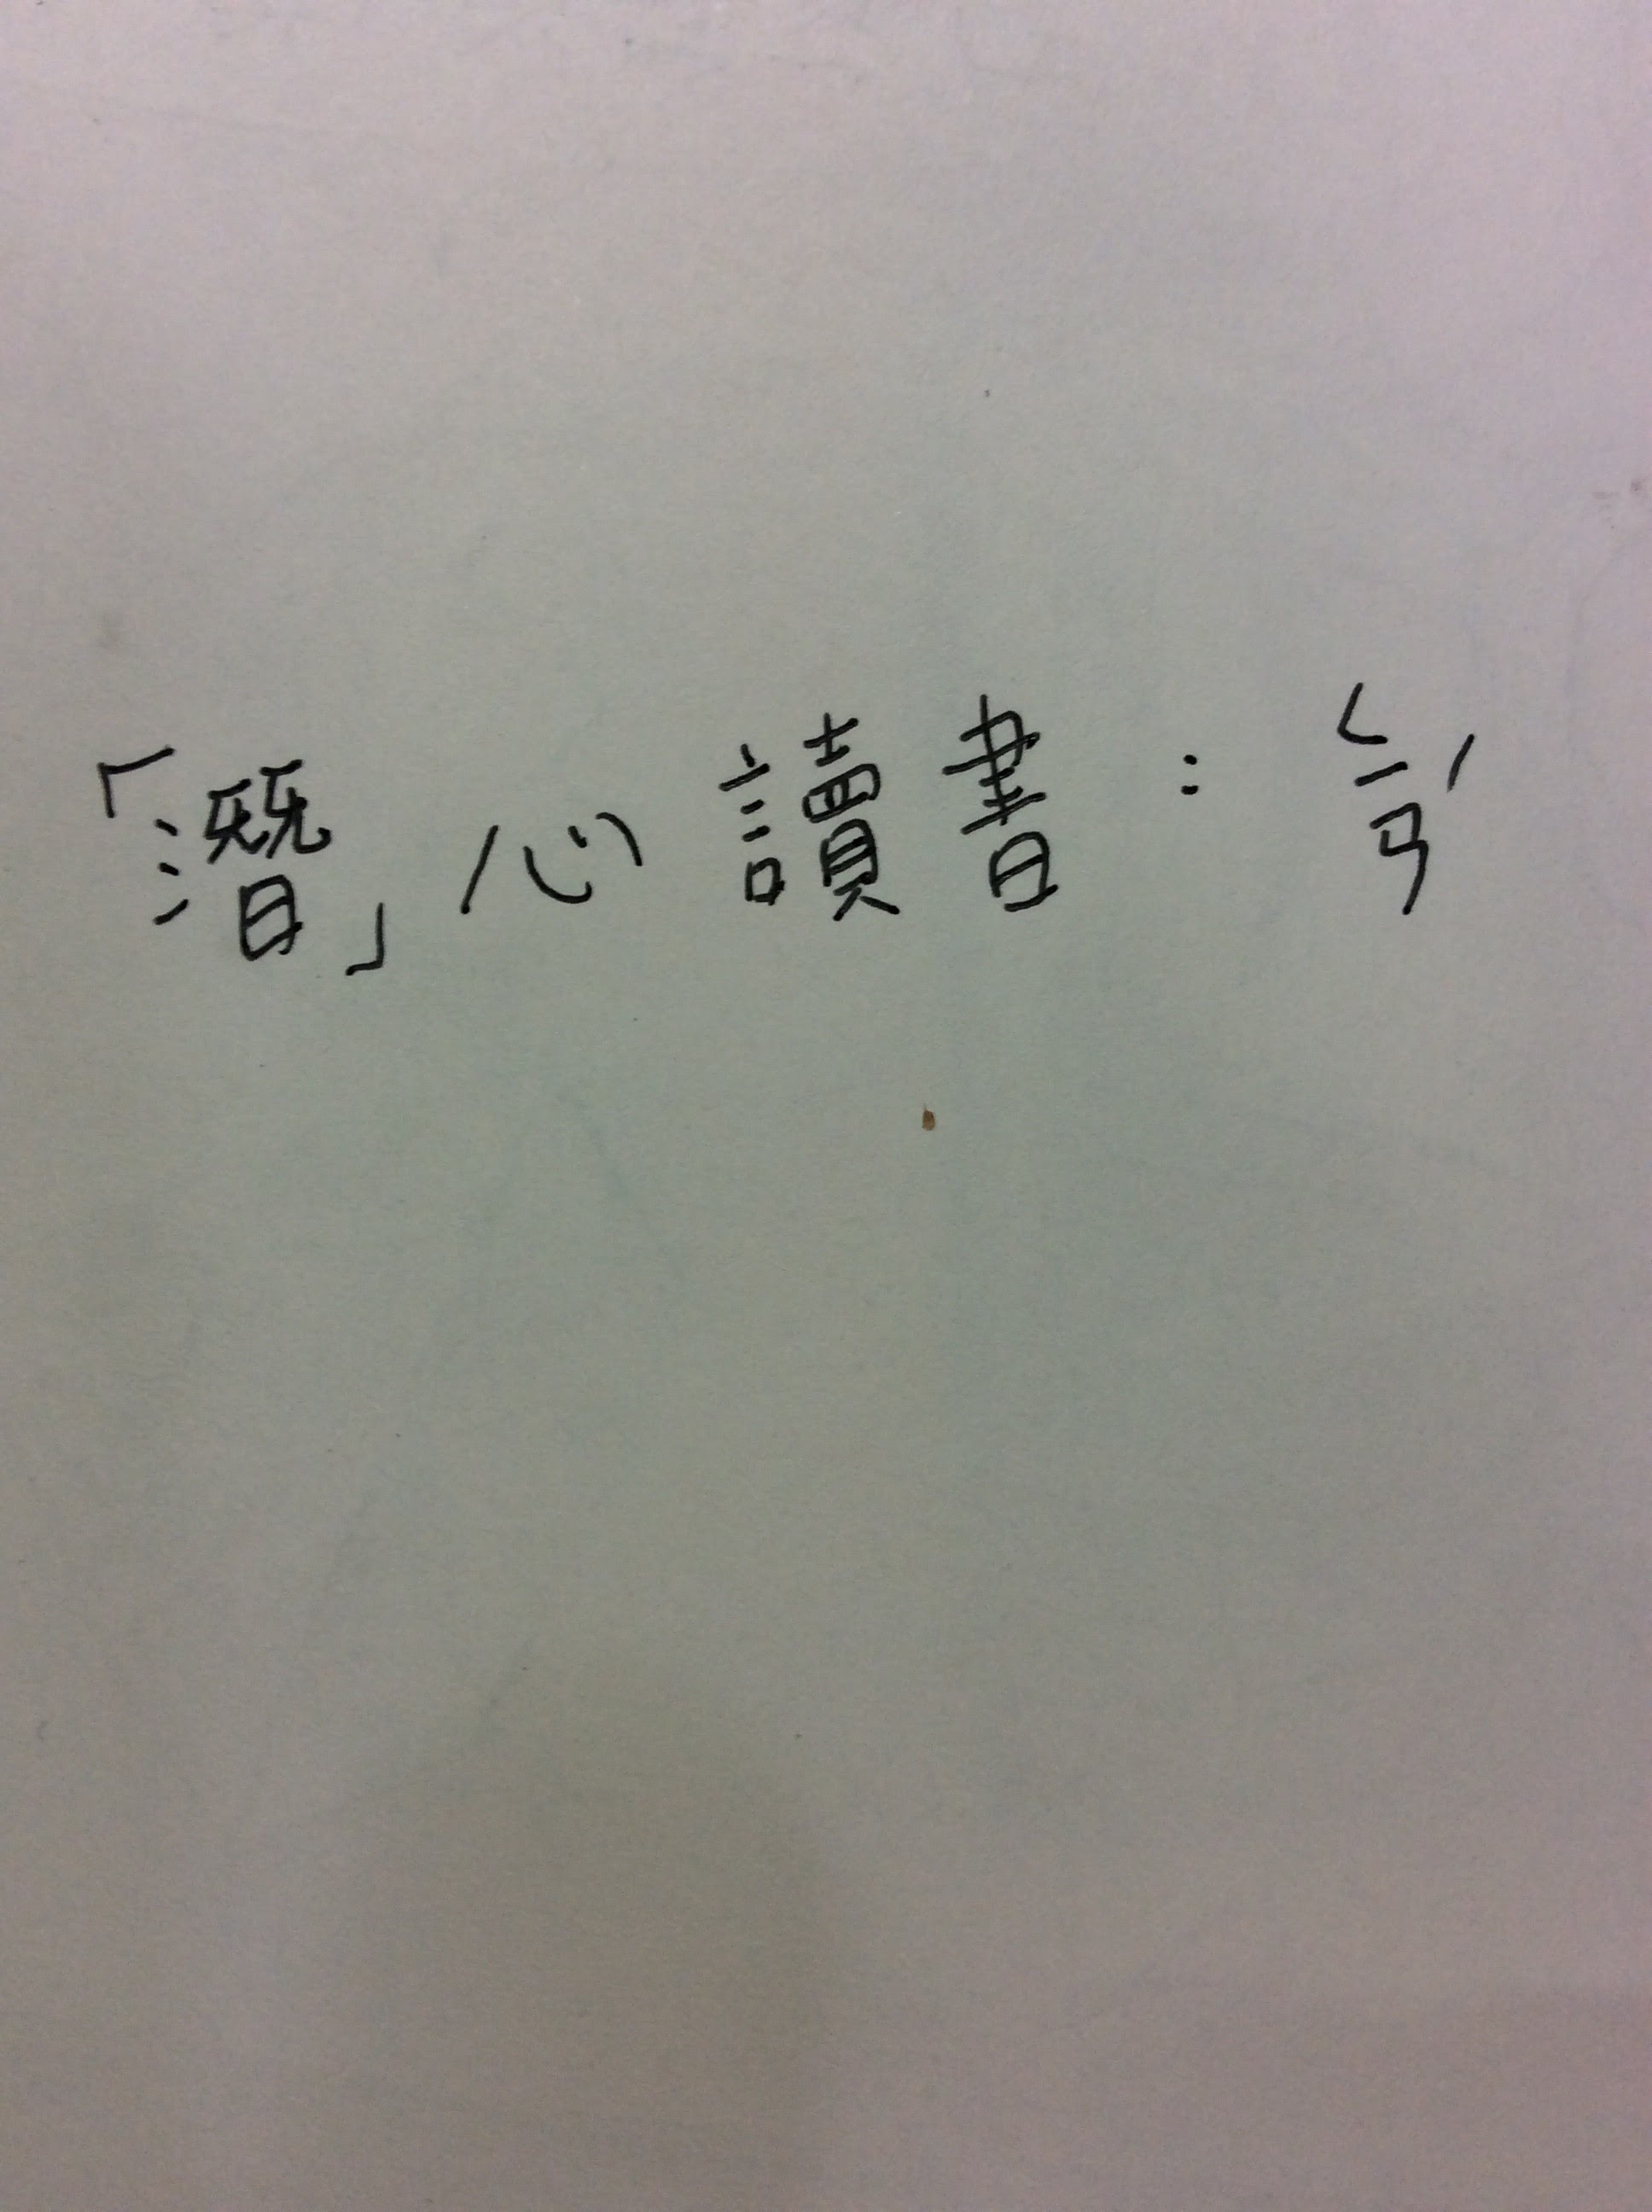 「潛」心讀書：ㄑㄧㄢˊ